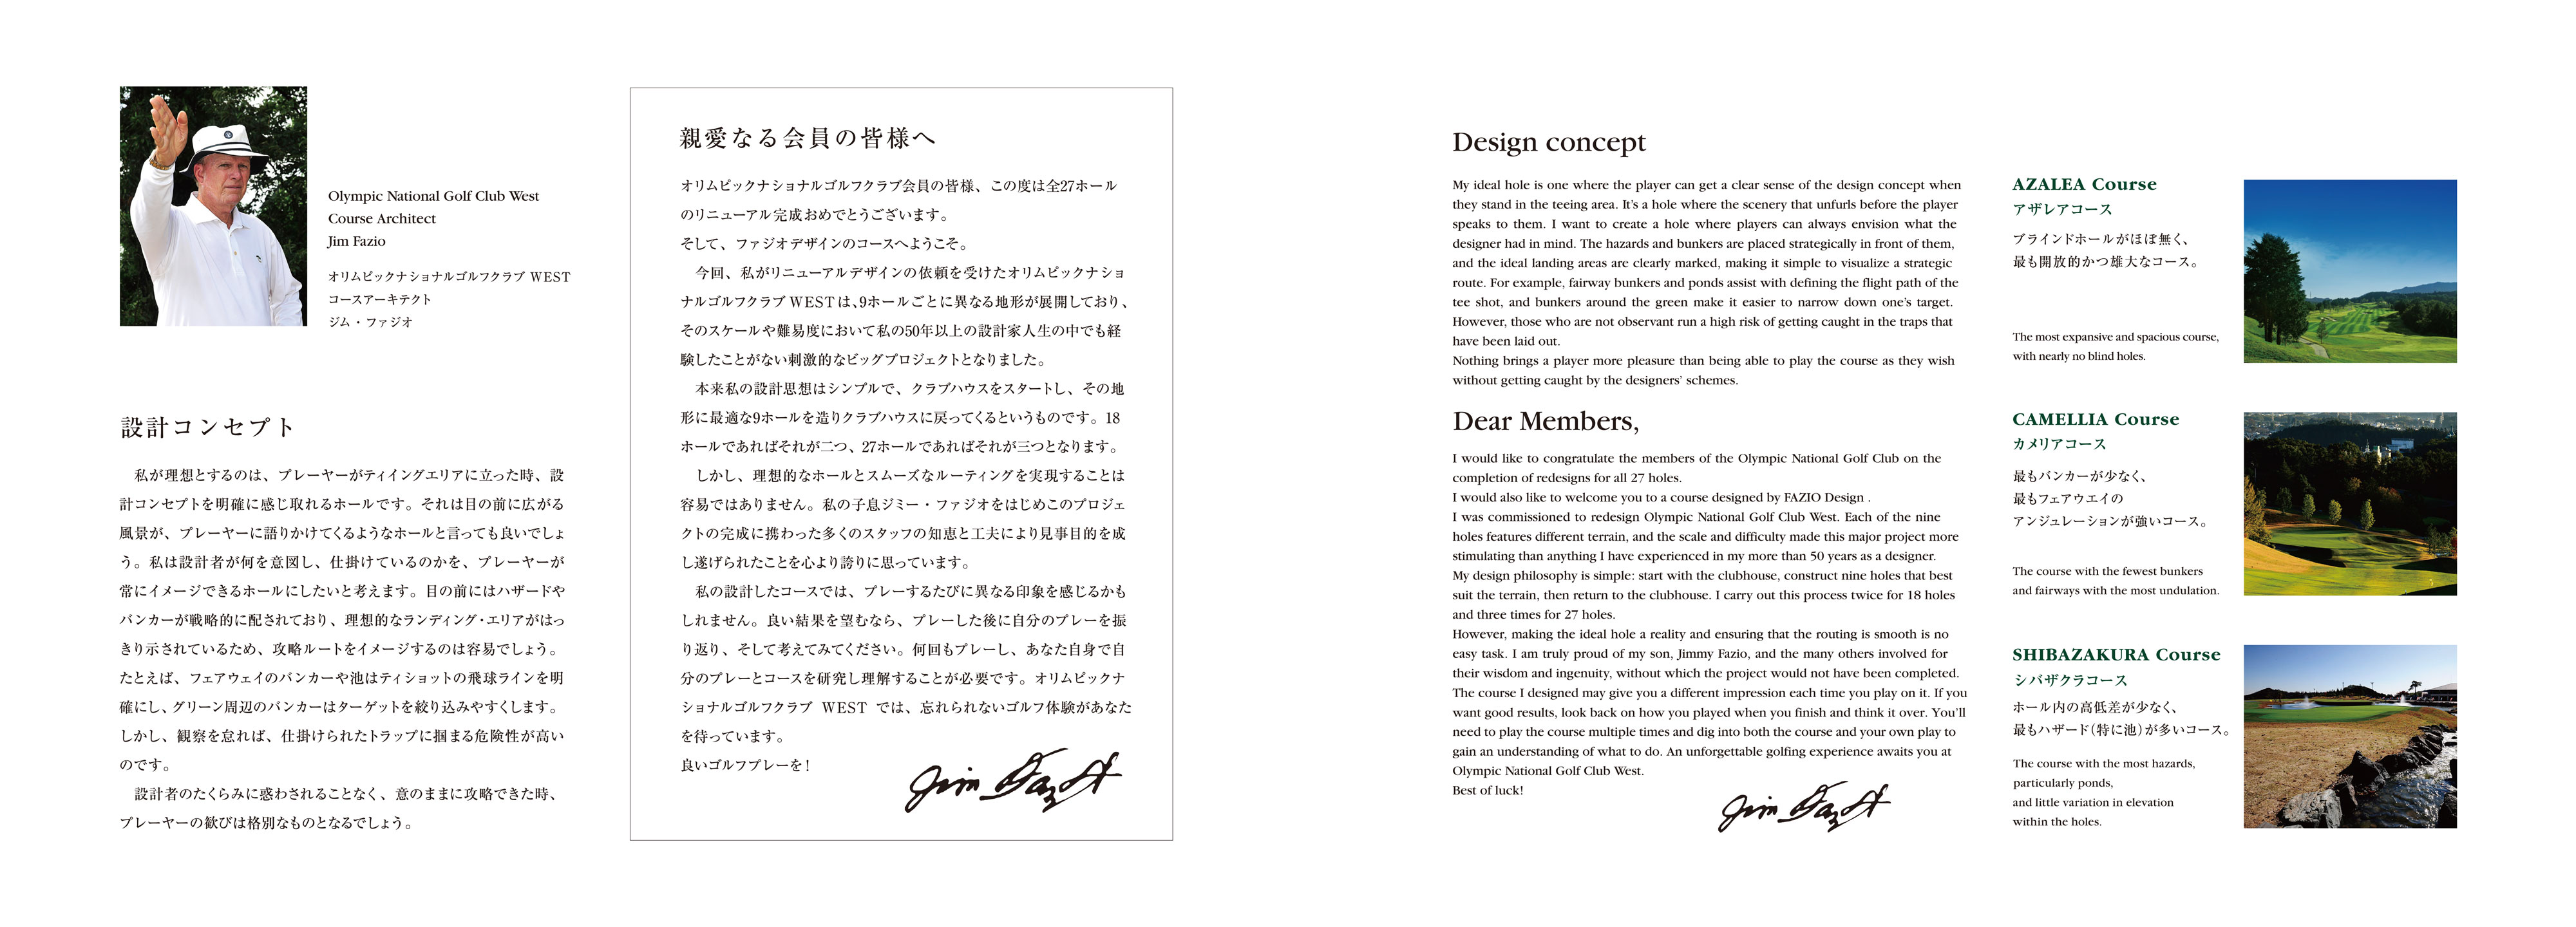 Olympic National Golf Club West
Course Architect
Jim Fazio
オリムピックナショナルゴルフクラブ WEST
コースアーキテクト
ジム・ファジオ
設計コンセプト
私が理想とするのは、プレーヤーがティイングエリアに立った時、設
計コンセプトを明確に感じ取れるホールです。それは目の前に広がる
風景が、プレーヤーに語りかけてくるようなホールと言っても良いでしょ
う。私は設計者が何を意図し、仕掛けているのかを、プレーヤーが
常にイメージできるホールにしたいと考えます。目の前にはハザードや
バンカーが戦略的に配されており、理想的なランディング・エリアがはっ
きり示されているため、攻略ルートをイメージするのは容易でしょう。
たとえば、フェアウェイのバンカーや池はティショットの飛球ラインを明
確にし、グリーン周辺のバンカーはターゲットを絞り込みやすくします。
しかし、観察を怠れば、仕掛けられたトラップに掴まる危険性が高い
のです。
設計者のたくらみに惑わされることなく、意のままに攻略できた時、
プレーヤーの歓びは格別なものとなるでしょう。
親愛なる会員の皆様へ
オリムピックナショナルゴルフクラブ会員の皆様、この度は全27ホール
のリニューアル完成おめでとうございます。
そして、ファジオデザインのコースへようこそ。
今回、私がリニューアルデザインの依頼を受けたオリムピックナショ
ナルゴルフクラブWESTは、9ホールごとに異なる地形が展開しており、
そのスケールや難易度において私の50年以上の設計家人生の中でも経
験したことがない刺激的なビッグプロジェクトとなりました。
本来私の設計思想はシンプルで、クラブハウスをスタートし、その地
形に最適な9ホールを造りクラブハウスに戻ってくるというものです。18
ホールであればそれが二つ、27ホールであればそれが三つとなります。
しかし、理想的なホールとスムーズなルーティングを実現することは
容易ではありません。私の子息ジミー・ファジオをはじめこのプロジェ
クトの完成に携わった多くのスタッフの知恵と工夫により見事目的を成
し遂げられたことを心より誇りに思っています。
私の設計したコースでは、プレーするたびに異なる印象を感じるかも
しれません。良い結果を望むなら、プレーした後に自分のプレーを振
り返り、そして考えてみてください。何回もプレーし、あなた自身で自
分のプレーとコースを研究し理解することが必要です。オリムピックナ
ショナルゴルフクラブ WEST では、忘れられないゴルフ体験があなた
を待っています。
良いゴルフプレーを!
Jim Fazio
Design concept
My ideal hole is one where the player can get a clear sense of the design concept when
they stand in the teeing area. It's a hole where the scenery that unfurls before the player
speaks to them. I want to create a hole where players can always envision what the
designer had in mind. The hazards and bunkers are placed strategically in front of them,
and the ideal landing areas are clearly marked, making it simple to visualize a strategic
route. For example, fairway bunkers and ponds assist with defining the flight path of the
tee shot, and bunkers around the green make it easier to narrow down one's target.
However, those who are not observant run a high risk of getting caught in the traps that
have been laid out.
Nothing brings a player more pleasure than being able to play the course as they wish
without getting caught by the designers' schemes.
Dear Members,
I would like to congratulate the members of the Olympic National Golf Club on the
completion of redesigns for all 27 holes.
I would also like to welcome you to a course designed by FAZIO Design .
I was commissioned to redesign Olympic National Golf Club West. Each of the nine
holes features different terrain, and the scale and difficulty made this major project more
stimulating than anything I have experienced in my more than 50 years as a designer.
My design philosophy is simple: start with the clubhouse, construct nine holes that best
suit the terrain, then return to the clubhouse. I carry out this process twice for 18 holes
and three times for 27 holes.
However, making the ideal hole a reality and ensuring that the routing is smooth is no
easy task. I am truly proud of my son, Jimmy Fazio, and the many others involved for
their wisdom and ingenuity, without which the project would not have been completed.
The course I designed may give you a different impression each time you play on it. If you
want good results, look back on how you played when you finish and think it over. You'll
need to play the course multiple times and dig into both the course and your own play to
gain an understanding of what to do. An unforgettable golfing experience awaits you at
Olympic National Golf Club West.
Best of luck!
Jim Fazio
AZALEA Course
アザレアコース
ブラインドホールがほぼ無く、
最も開放的かつ雄大なコース。
The most expansive and spacious course,
with nearly no blind holes.
CAMELLIA Course
カメリアコース
最もバンカーが少なく、
最もフェアウエイの
アンジュレーションが強いコース。
The course with the fewest bunkers
and fairways with the most undulation.
SHIBAZAKURA Course
シバザクラコース
ホール内の高低差が少なく、
最もハザード(特に池)が多いコース。
The course with the most hazards,
particularly ponds,
and little variation in elevation
within the holes.